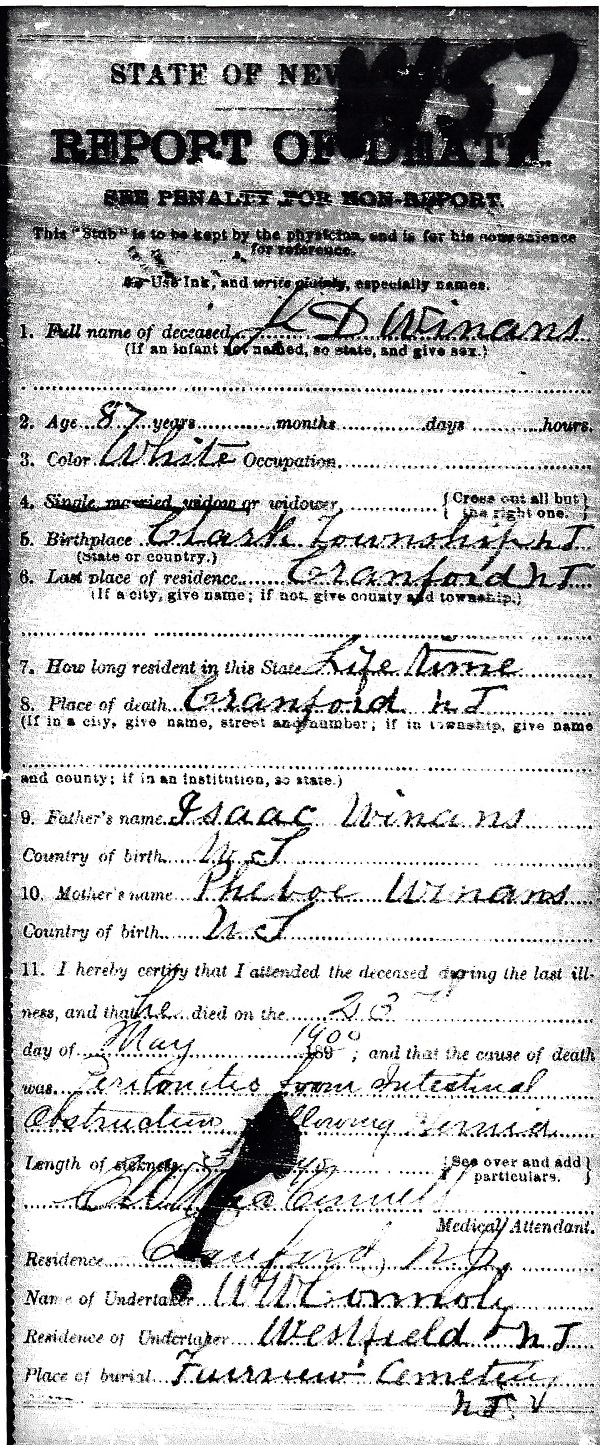 STATE OF NEW
W57
REPORT OF DEATH.
SEE PENALTY FOR NON-REPORT.
This "Stub" is to be kept by the physician, and is for his convenience
for reference.
Use Ink, and write plainly, especially names.
1. Full name of deceased D Winans
(If an infant not named, so state, and give sex.)
2. Age 87 years months days hours.
3. Color White Occupation
4. Single, married, widow or widower (Cross out all but
the right one.)
5. Birthplace Clark Township NJ
(State or country.)
6. Last place of residence Cranford NJ
(If a city, give name; if not, give county and township.)
7. How long resident in this State Life time
8. Place of death Cranford NJ
(If in a city, give name, street and number; if in township, give name
and county; if in an institution, so state.)
9. Father's name Isaac Winans
Country of birth NJ
10. Mother's name Pheboe Winans
Country of birth NJ
11. I hereby certify that I attended the deceased during the last ill-
ness, and that he died on the 23
day of May 1900 189 ; and that the cause of death
was Peritonitis from Intestinal
Obstruction following Hernia
Length of sickness (See over and add
particulars.)
Medical Attendant.
Residence Cranford, N.J.
Name of Undertaker WW Connoly
Residence of Undertaker Westfield NJ
Place of burial Fairview Cemetery
NJ